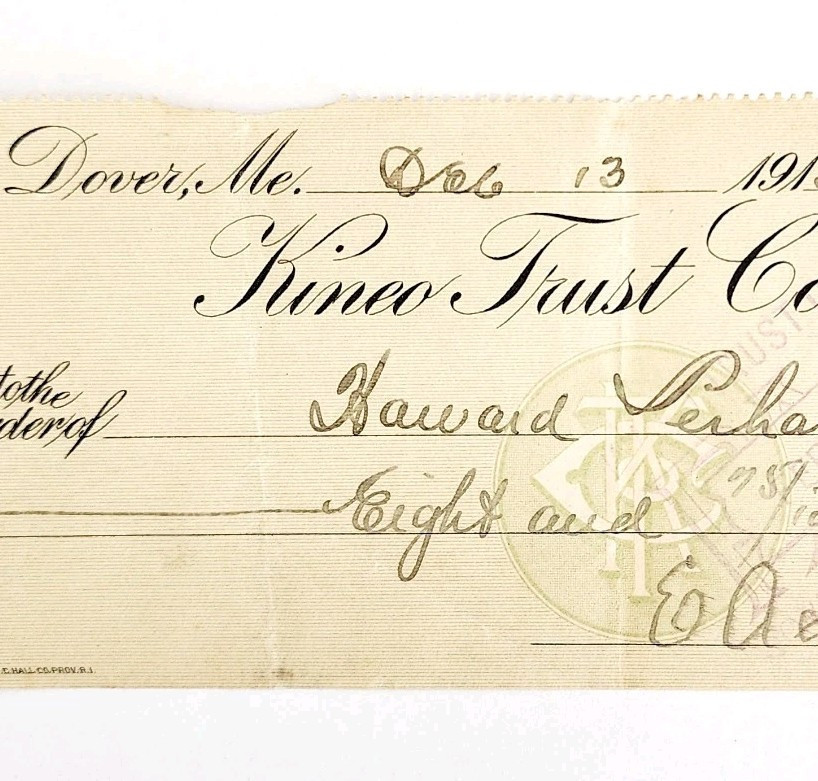 Dover, Me. Dec 13 191
Kineo Trust Co
to the
der of Haward Perha
Eight and 75/
E A
C. HALL CO. PROV. R. I.